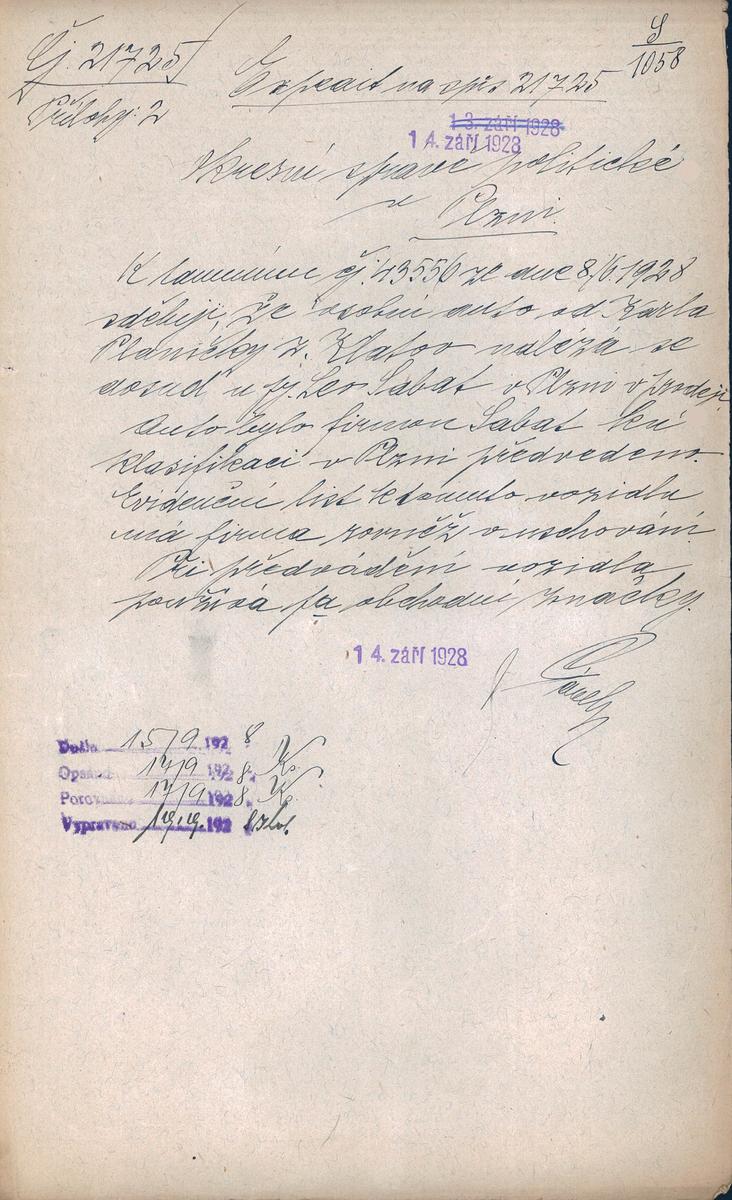 Čj. 21725
S
1058
Přílohy: 2
Expedit na spis 21725
13. září 1928
14. září 1928
Okresní správě politické
v Plzni.
K tamnímu čj. 43556 ze dne 8./6.1928
sděluji, že osobní auto od Karla
Planičky z Klatov nalézá se
dosud u fy. Leo Sabat v Plzni v prodeji.
Auto bylo firmou Sabat ku
klasifikaci v Plzni předvedeno.
Evidenční list k tomuto vozidlu
má firma rovněž v uschování.
Při předvádění vozidla
používá fa obchodní značky.
14. září 1928
Došlo 15/9 192 8
Opsáno 17/9 192 8.
Porovnáno 17/9 192 8.
Vypraveno 19./9. 192 8